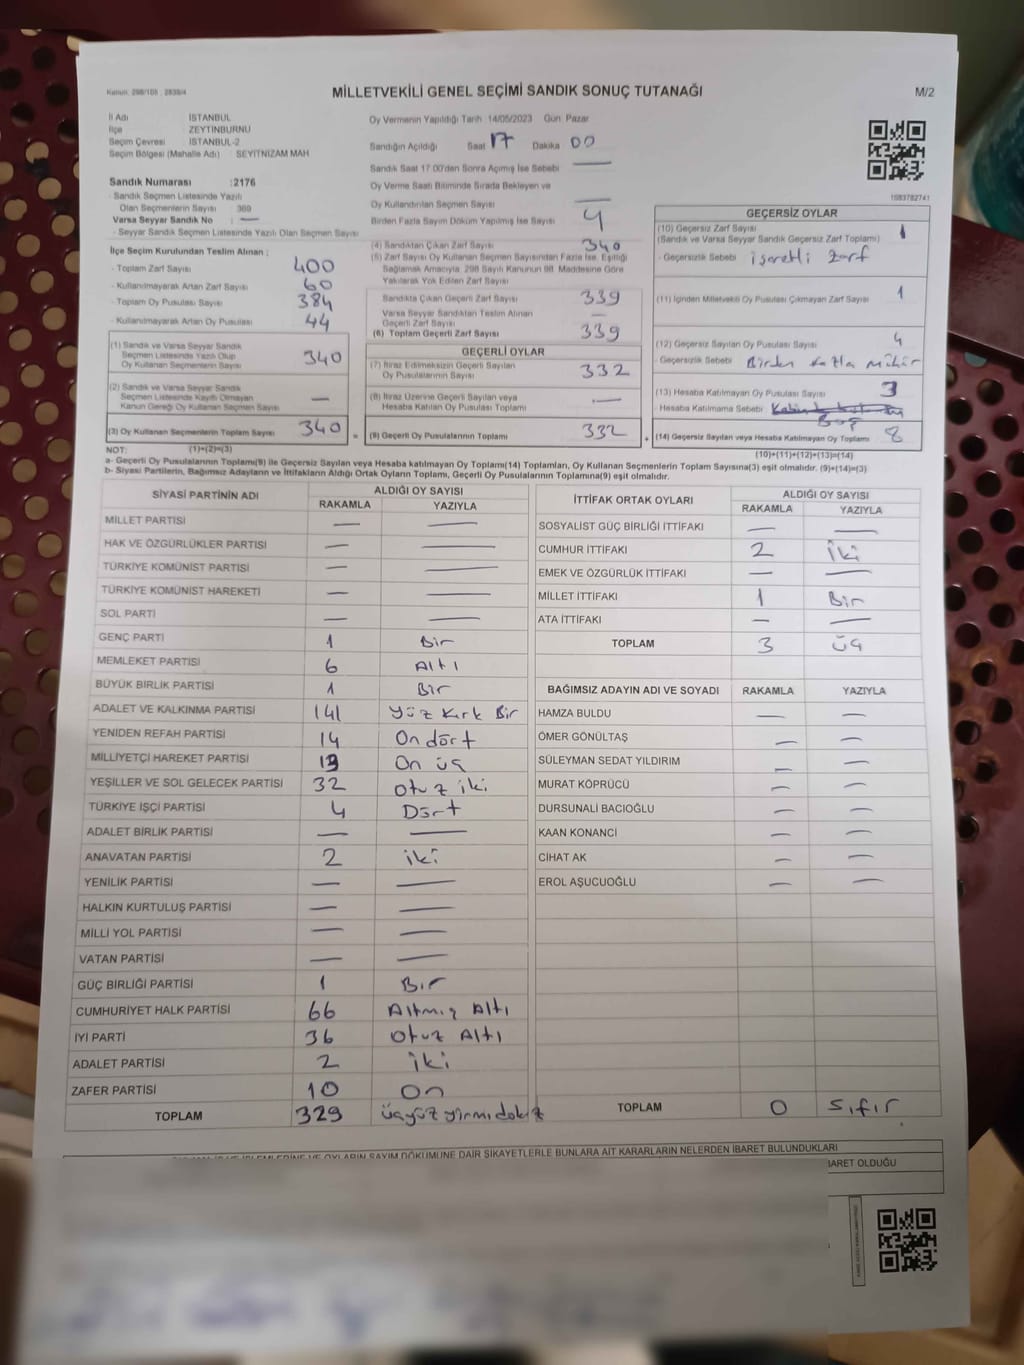 Kanun: 298/105 , 2839/4
MİLLETVEKİLİ GENEL SEÇİMİ SANDIK SONUÇ TUTANAĞI
M/2
İl Adı : İSTANBUL
İlçe : ZEYTİNBURNU
Seçim Çevresi : İSTANBUL-2
Seçim Bölgesi (Mahalle Adı) : SEYİTNİZAM MAH
Sandık Numarası : 2176
- Sandık Seçmen Listesinde Yazılı
Olan Seçmenlerin Sayısı : 369
Varsa Seyyar Sandık No : —
- Seyyar Sandık Seçmen Listesinde Yazılı Olan Seçmen Sayısı
İlçe Seçim Kurulundan Teslim Alınan ;
- Toplam Zarf Sayısı 400
- Kullanılmayarak Artan Zarf Sayısı 60
- Toplam Oy Pusulası Sayısı 384
- Kullanılmayarak Artan Oy Pusulası 44
(1) Sandık ve Varsa Seyyar Sandık
Seçmen Listesinde Yazılı Olup
Oy Kullanan Seçmenlerin Sayısı 340
(2) Sandık ve Varsa Seyyar Sandık
Seçmen Listesinde Kayıtlı Olmayan
Kanun Gereği Oy Kullanan Seçmen Sayısı —
(3) Oy Kullanan Seçmenlerin Toplam Sayısı 340
(1)+(2)=(3)
Oy Vermenin Yapıldığı Tarih :14/05/2023 Gün: Pazar
Sandığın Açıldığı Saat 17 Dakika 00
Sandık Saat 17.00'den Sonra Açılmış İse Sebebi —
Oy Verme Saati Bitiminde Sırada Bekleyen ve
Oy Kullandırılan Seçmen Sayısı —
Birden Fazla Sayım Döküm Yapılmış İse Sayısı 4
(4) Sandıktan Çıkan Zarf Sayısı 340
(5) Zarf Sayısı Oy Kullanan Seçmen Sayısından Fazla İse, Eşitliği
Sağlamak Amacıyla, 298 Sayılı Kanunun 98. Maddesine Göre
Yakılarak Yok Edilen Zarf Sayısı
Sandıkta Çıkan Geçerli Zarf Sayısı 339
Varsa Seyyar Sandıktan Teslim Alınan
Geçerli Zarf Sayısı —
(6) Toplam Geçerli Zarf Sayısı 339
GEÇERLİ OYLAR
(7) İtiraz Edilmeksizin Geçerli Sayılan
Oy Pusulalarının Sayısı 332
(8) İtiraz Üzerine Geçerli Sayılan veya
Hesaba Katılan Oy Pusulası Toplamı —
= (9) Geçerli Oy Pusulalarının Toplamı 332 +
1083782741
GEÇERSİZ OYLAR
(10) Geçersiz Zarf Sayısı 1
(Sandık ve Varsa Seyyar Sandık Geçersiz Zarf Toplamı)
- Geçersizlik Sebebi işaretli zarf
(11) İçinden Milletvekili Oy Pusulası Çıkmayan Zarf Sayısı 1
(12) Geçersiz Sayılan Oy Pusulası Sayısı 4
- Geçersizlik Sebebi Birden fazla mühür
(13) Hesaba Katılmayan Oy Pusulası Sayısı 3
- Hesaba Katılmama Sebebi
Boş
(14) Geçersiz Sayılan veya Hesaba Katılmayan Oy Toplamı 8
(10)+(11)+(12)+(13)=(14)
NOT:
a- Geçerli Oy Pusulalarının Toplamı(9) ile Geçersiz Sayılan veya Hesaba katılmayan Oy Toplamı(14) Toplamları, Oy Kullanan Seçmenlerin Toplam Sayısına(3) eşit olmalıdır. (9)+(14)=(3)
b- Siyasi Partilerin, Bağımsız Adayların ve İttifakların Aldığı Ortak Oyların Toplamı, Geçerli Oy Pusulalarının Toplamına(9) eşit olmalıdır.
SİYASİ PARTİNİN ADI ALDIĞI OY SAYISI
RAKAMLA YAZIYLA
MİLLET PARTİSİ — —
HAK VE ÖZGÜRLÜKLER PARTİSİ — —
TÜRKİYE KOMÜNİST PARTİSİ — —
TÜRKİYE KOMÜNİST HAREKETİ — —
SOL PARTİ — —
GENÇ PARTİ 1 Bir
MEMLEKET PARTİSİ 6 Altı
BÜYÜK BİRLİK PARTİSİ 1 Bir
ADALET VE KALKINMA PARTİSİ 141 Yüz Kırk Bir
YENİDEN REFAH PARTİSİ 14 On dört
MİLLİYETÇİ HAREKET PARTİSİ 13 On üç
YEŞİLLER VE SOL GELECEK PARTİSİ 32 otuz iki
TÜRKİYE İŞÇİ PARTİSİ 4 Dört
ADALET BİRLİK PARTİSİ — —
ANAVATAN PARTİSİ 2 iki
YENİLİK PARTİSİ — —
HALKIN KURTULUŞ PARTİSİ — —
MİLLİ YOL PARTİSİ — —
VATAN PARTİSİ — —
GÜÇ BİRLİĞİ PARTİSİ 1 Bir
CUMHURİYET HALK PARTİSİ 66 Altmış Altı
İYİ PARTİ 36 Otuz Altı
ADALET PARTİSİ 2 iki
ZAFER PARTİSİ 10 On
TOPLAM 329 üçyüz yirmi dokuz
İTTİFAK ORTAK OYLARI ALDIĞI OY SAYISI
RAKAMLA YAZIYLA
SOSYALİST GÜÇ BİRLİĞİ İTTİFAKI — —
CUMHUR İTTİFAKI 2 İki
EMEK VE ÖZGÜRLÜK İTTİFAKI — —
MİLLET İTTİFAKI 1 Bir
ATA İTTİFAKI — —
TOPLAM 3 üç
BAĞIMSIZ ADAYIN ADI VE SOYADI RAKAMLA YAZIYLA
HAMZA BULDU — —
ÖMER GÖNÜLTAŞ — —
SÜLEYMAN SEDAT YILDIRIM — —
MURAT KÖPRÜCÜ — —
DURSUNALİ BACIOĞLU — —
KAAN KONANCİ — —
CİHAT AK — —
EROL AŞUCUOĞLU — —
TOPLAM 0 sıfır
OYLARIN SAYIM DÖKÜMÜNE DAİR ŞİKAYETLERLE BUNLARA AİT KARARLARIN NELERDEN İBARET BULUNDUKLARI
İBARET OLDUĞU